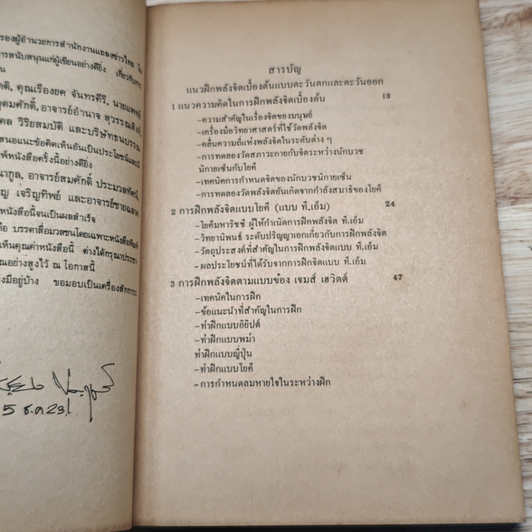 รองผู้อำนวยการสำนักงานแถลงข่าวไทย
การสนับสนุนแก่ผู้เขียนอย่างดียิ่ง
คุณเรืองยศ จันทรคีรี, นายแพทย์
อุดมศักดิ์, อาจารย์อำนาจ
วิริยสมบัติ และบริษัทธนบรรณ
เสนอแนะข้อคิดเห็นอันเป็นประโยชน์และ
พิมพ์หนังสือครั้งนี้อย่างดียิ่ง
อาจารย์สมศักดิ์ ประมวลทัศน์,
เจริญทิพย์ และอาจารย์ชาย
หนังสือนี้จนเป็นผลสำเร็จ
คือ บรรดาสื่อมวลชนโดยเฉพาะหนังสือพิมพ์
เห็นคุณค่าหนังสือนี้ ต่างได้กรุณาประชา
อย่างสูงไว้ ณ โอกาสนี้
มีอยู่บ้าง ขอมอบเป็นเครื่องสักการะ
5 ธ.ค 23
สารบัญ
แนวฝึกพลังจิตเบื้องต้นแบบตะวันตกและตะวันออก
1 แนวความคิดในการฝึกพลังจิตเบื้องต้น 13
-ความสำคัญในเรื่องจิตของมนุษย์
-เครื่องมือวิทยาศาสตร์ที่ใช้วัดพลังจิต
-คลื่นความถี่แห่งพลังจิตในระดับต่าง ๆ
-การทดลองวัดสภาวะกายกับจิตระหว่างนักบวช
นิกายเซ็นกับโยคี
-เทคนิคการกำหนดจิตของนักบวชนิกายเซ็น
-การทดลองวัดพลังจิตอันเกิดจากกำลังสมาธิของโยคี
2 การฝึกพลังจิตแบบโยคี (แบบ ที.เอ็ม) 24
-โยคีมหาริชชี ผู้ให้กำเนิดการฝึกพลังจิต ที.เอ็ม
-วิทยานิพนธ์ ระดับปริญญาเอกเกี่ยวกับการฝึกพลังจิต
-วัตถุประสงค์ที่สำคัญในการฝึกพลังจิตแบบ ที.เอ็ม
-ผลประโยชน์ที่ได้รับจากการฝึกจิตแบบ ที.เอ็ม
3 การฝึกพลังจิตตามแบบของ เจมส์ เฮวิตต์ 47
-เทคนิคในการฝึก
-ข้อแนะนำที่สำคัญในการฝึก
-ท่าฝึกแบบอียิปต์
-ท่าฝึกแบบพม่า
ท่าฝึกแบบญี่ปุ่น
-ท่าฝึกแบบโยคี
-การกำหนดลมหายใจในระหว่างฝึก